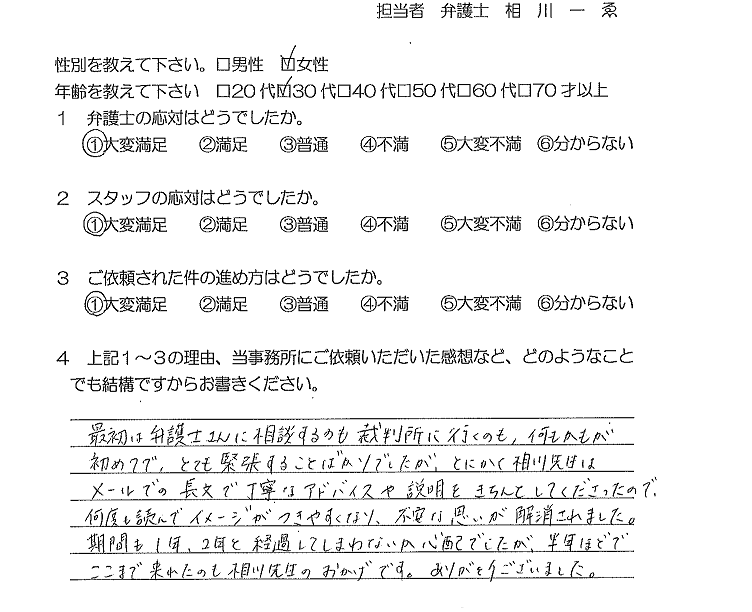 担当者 弁護士 相 川 一 ゑ
性別を教えて下さい。□男性 ☑女性
年齢を教えて下さい □20代☑30代□40代□50代□60代□70才以上
1 弁護士の応対はどうでしたか。
①大変満足 ②満足 ③普通 ④不満 ⑤大変不満 ⑥分からない
2 スタッフの応対はどうでしたか。
①大変満足 ②満足 ③普通 ④不満 ⑤大変不満 ⑥分からない
3 ご依頼された件の進め方はどうでしたか。
①大変満足 ②満足 ③普通 ④不満 ⑤大変不満 ⑥分からない
4 上記1~3の理由、当事務所にご依頼いただいた感想など、どのようなこと
でも結構ですからお書きください。
最初は弁護士さんに相談するのも裁判所に行くのも、何もかもが
初めてで、とても緊張することばかりでしたが、とにかく相川先生は
メールでの長文で丁寧なアドバイスや説明をきちんとしてくださったので、
何度も読んでイメージがつきやすくなり、不安な思いが解消されました。
期間も1年、2年と経過してしまわないか心配でしたが、半年ほどで
ここまで来れたのも相川先生のおかげです。ありがとうございました。